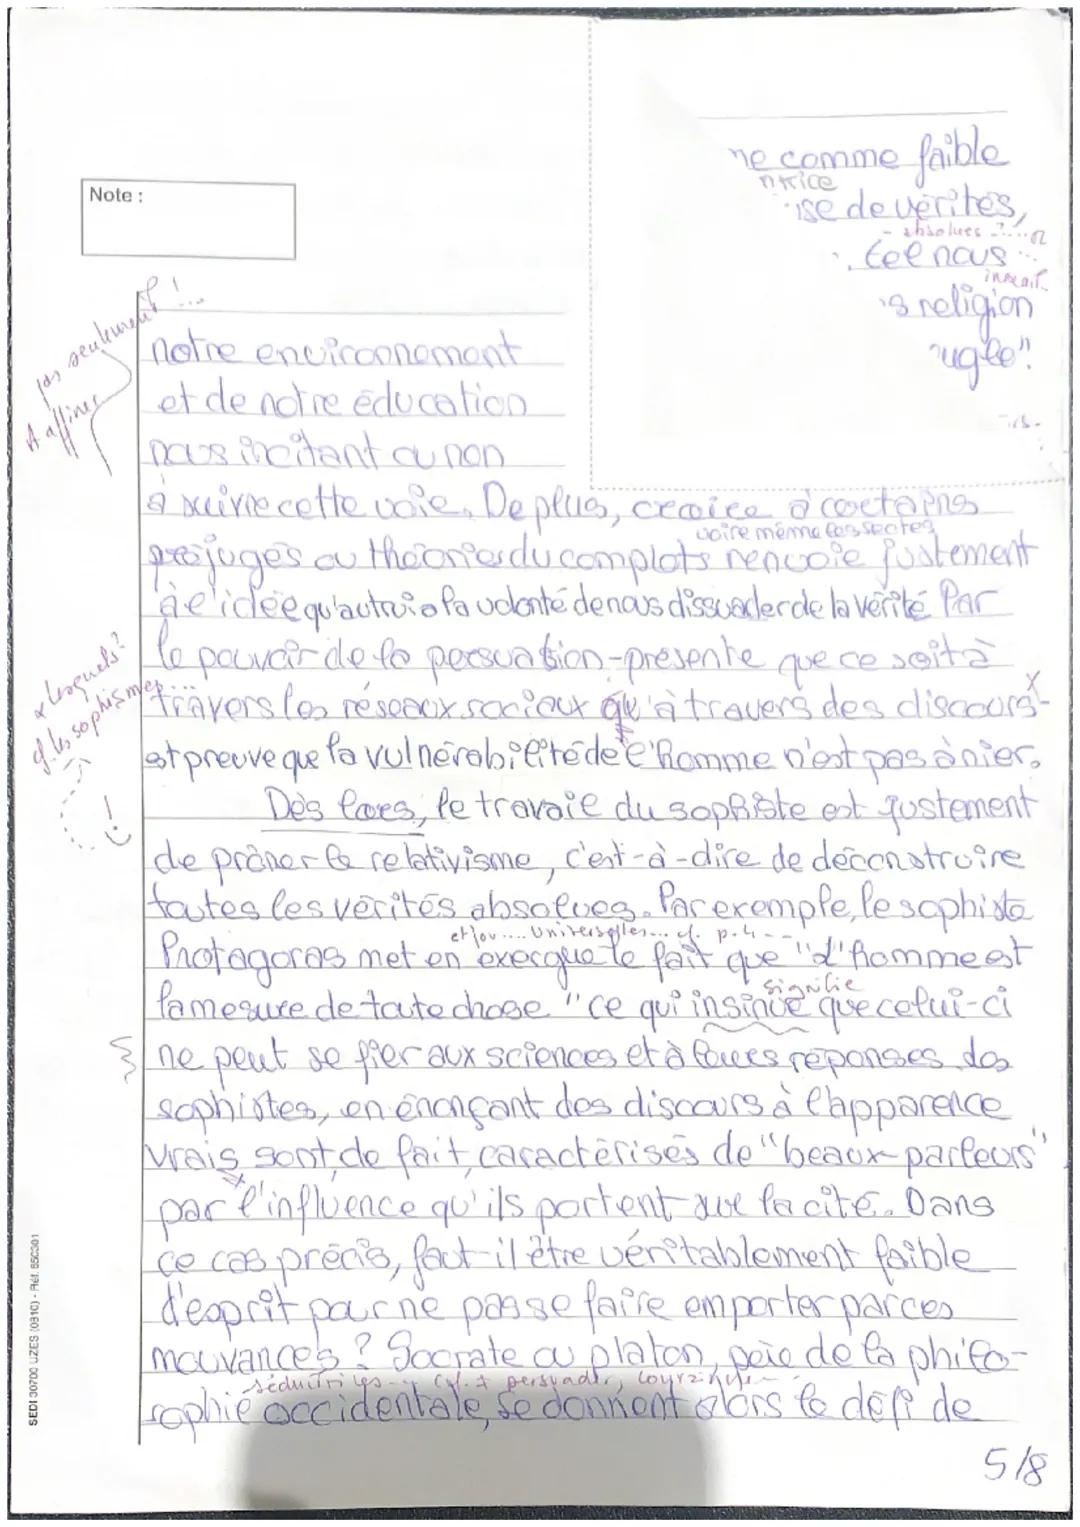 ne comme faible
Note :
ise de vérités,
absolues ?....
tel nous
s religion
ugle".
pas seulement !...
A affiner
notre environnement
et de notre éducation
nous incitant ou non
à suivre cette voie. De plus, croire à certains
voire même les sectes
préjugés ou théories du complots renvoie justement
à l'idée qu'autrui a la volonté de nous dissuader de la vérité. Par
le pouvoir de la persuasion - présente que ce soit à
x lesquels ?
cf. les sophismes...
travers les réseaux sociaux qu'à travers des discours -
est preuve que la vulnérabilité de l'homme n'est pas à nier.
Dès lors, le travail du sophiste est justement
de prôner le relativisme, c'est-à-dire de déconstruire
toutes les vérités absolues. Par exemple, le sophiste
et/ou.... Universelles... cf. p.4 - -
Protagoras met en exergue le fait que "l'homme est
signifie
la mesure de toute chose" ce qui insinue que celui-ci
ne peut se fier aux sciences et à leurs réponses. Les
sophistes, en énonçant des discours à l'apparence
vrais sont, de fait, caractérisés de "beaux-parleurs"
par l'influence qu'ils portent sur la cité. Dans
ce cas précis, faut-il être véritablement faible
d'esprit pour ne pas se faire emporter par ces
mouvances ? Socrate ou platon, père de la philo-
séductrices - cf. ≠ persuader, convaincre -
sophie occidentale, se donnent alors le défi de
5/8
SEDI 30700 UZES (0310) - Réf. 650301